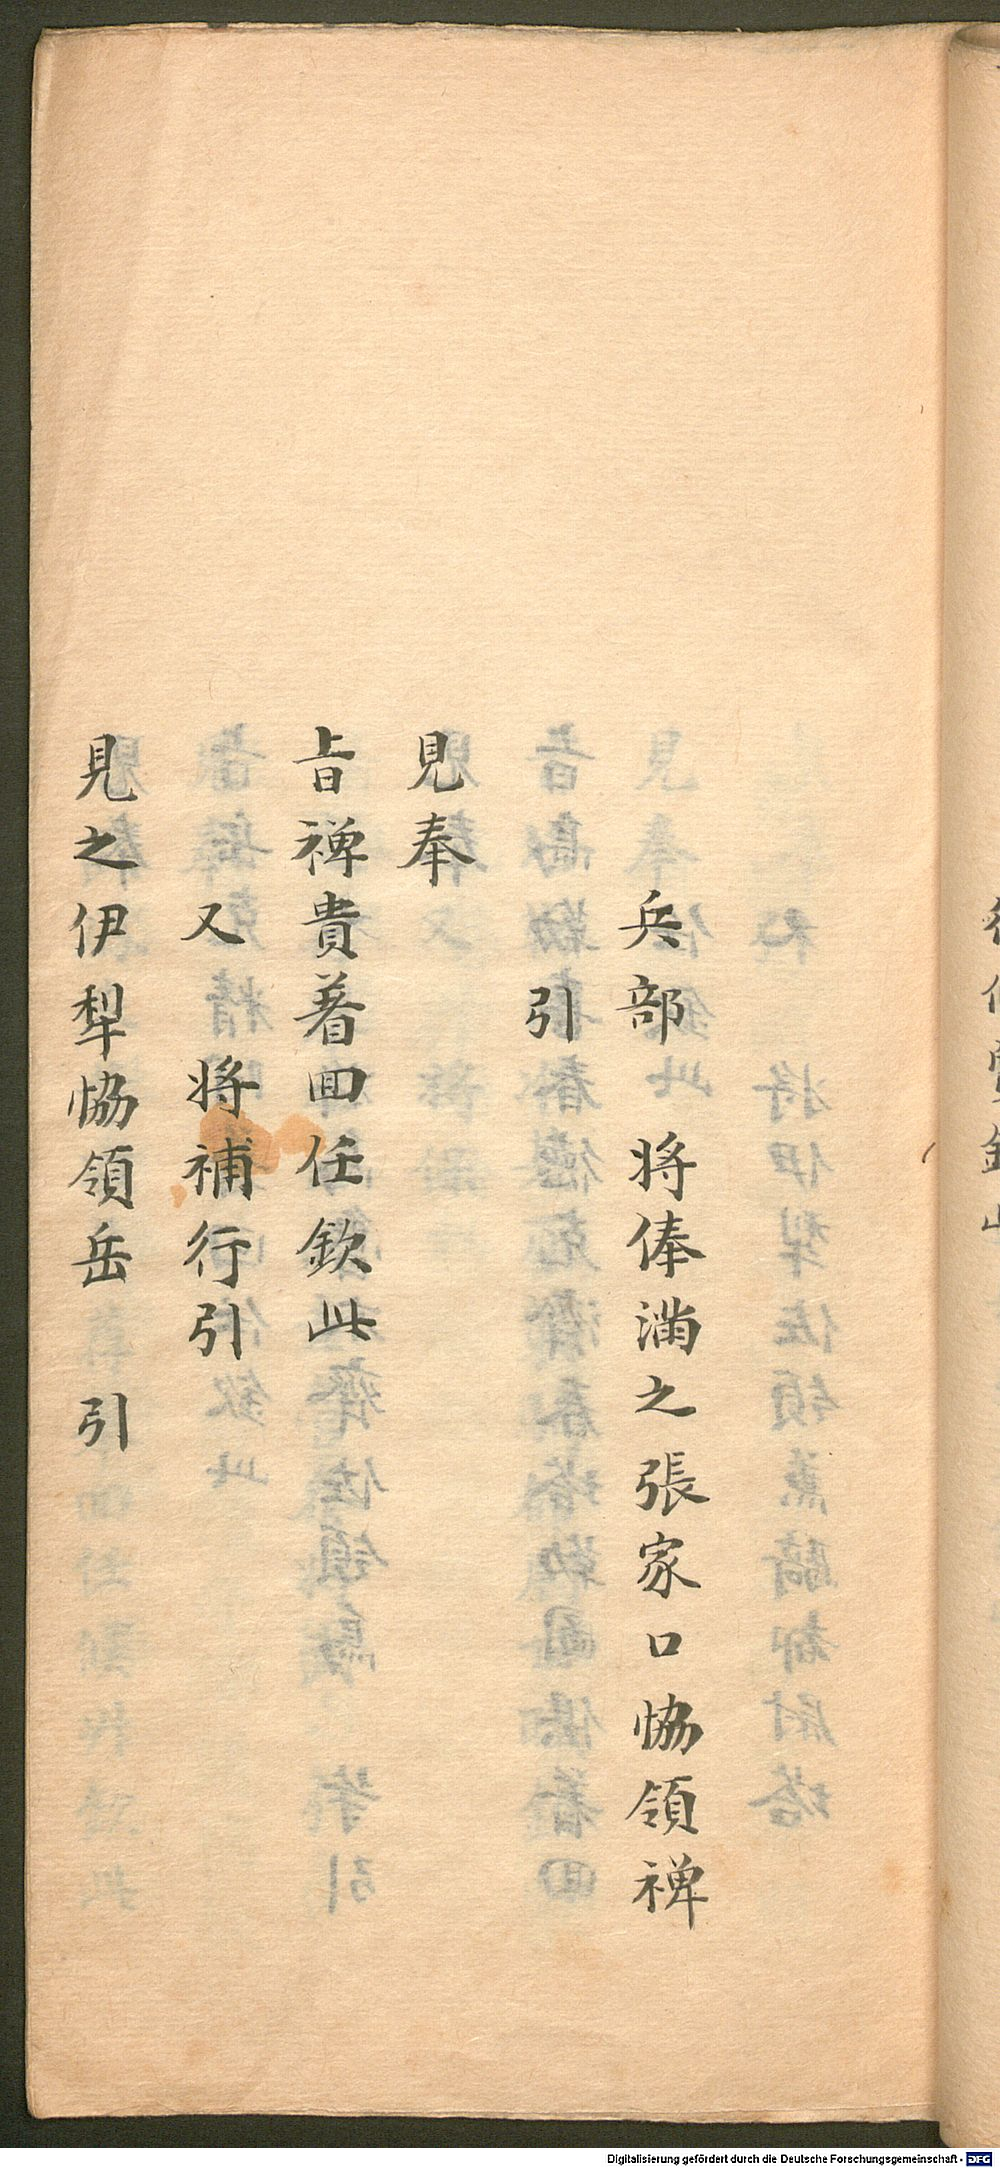 兵部 將俸滿之張家口協領禅
引
見奉
旨禅貴著回任欽此
又 將補行引
見之伊犁協領岳 引
Digitalisierung gefördert durch die Deutsche Forschungsgemeinschaft - DFG